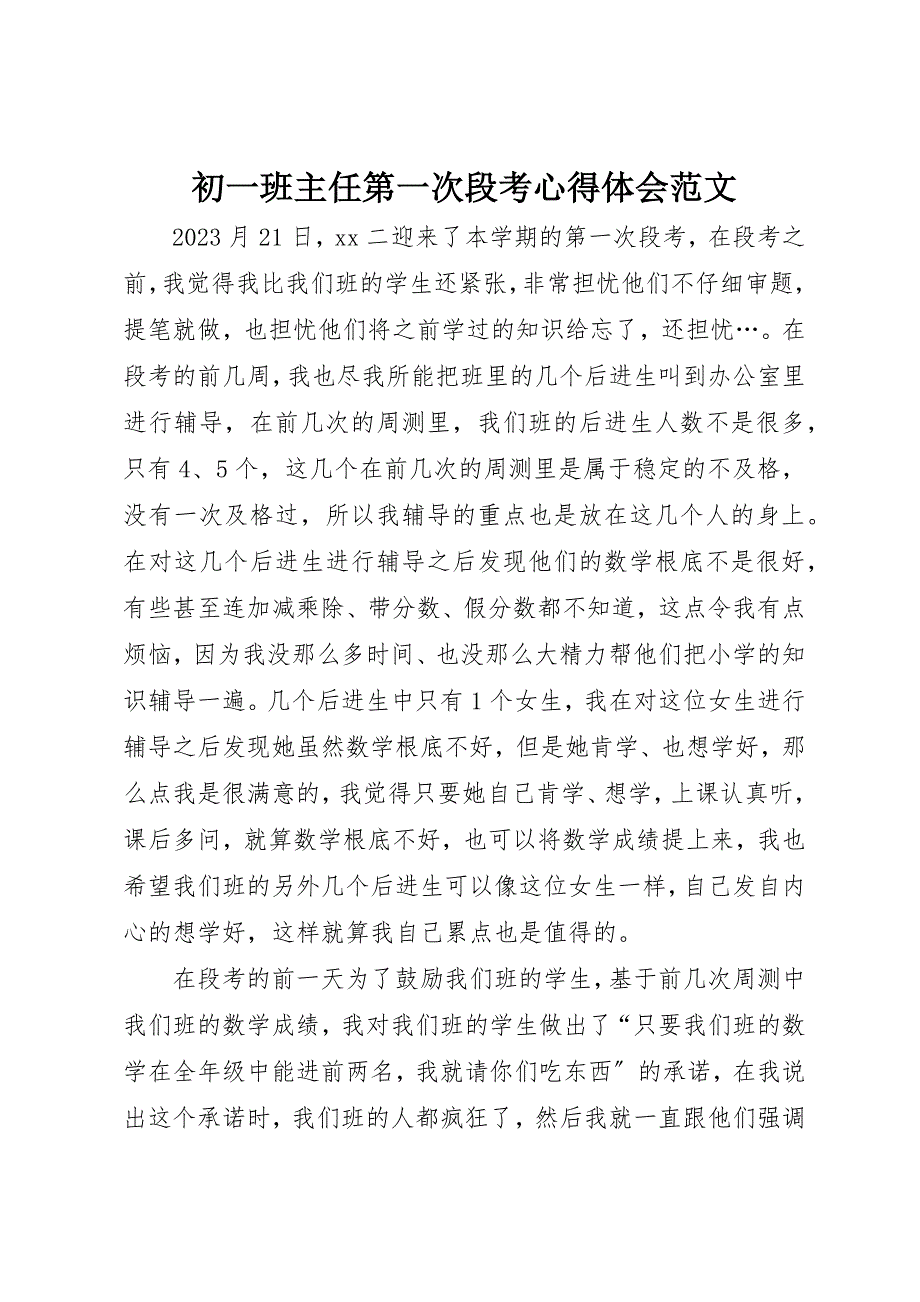 初一班主任第一次段考心得体会范文
2023 月 21 日，xx 二迎来了本学期的第一次段考，在段考之
前，我觉得我比我们班的学生还紧张，非常担忧他们不仔细审题，
提笔就做，也担忧他们将之前学过的知识给忘了，还担忧…。在
段考的前几周，我也尽我所能把班里的几个后进生叫到办公室里
进行辅导，在前几次的周测里，我们班的后进生人数不是很多，
只有 4、5 个，这几个在前几次的周测里是属于稳定的不及格，
没有一次及格过，所以我辅导的重点也是放在这几个人的身上。
在对这几个后进生进行辅导之后发现他们的数学根底不是很好，
有些甚至连加减乘除、带分数、假分数都不知道，这点令我有点
烦恼，因为我没那么多时间、也没那么大精力帮他们把小学的知
识辅导一遍。几个后进生中只有 1 个女生，我在对这位女生进行
辅导之后发现她虽然数学根底不好，但是她肯学、也想学好，那
么点我是很满意的，我觉得只要她自己肯学、想学，上课认真听，
课后多问，就算数学根底不好，也可以将数学成绩提上来，我也
希望我们班的另外几个后进生可以像这位女生一样，自己发自内
心的想学好，这样就算我自己累点也是值得的。
在段考的前一天为了鼓励我们班的学生，基于前几次周测中
我们班的数学成绩，我对我们班的学生做出了“只要我们班的数
学在全年级中能进前两名，我就请你们吃东西〞的承诺，在我说
出这个承诺时，我们班的人都疯狂了，然后我就一直跟他们强调